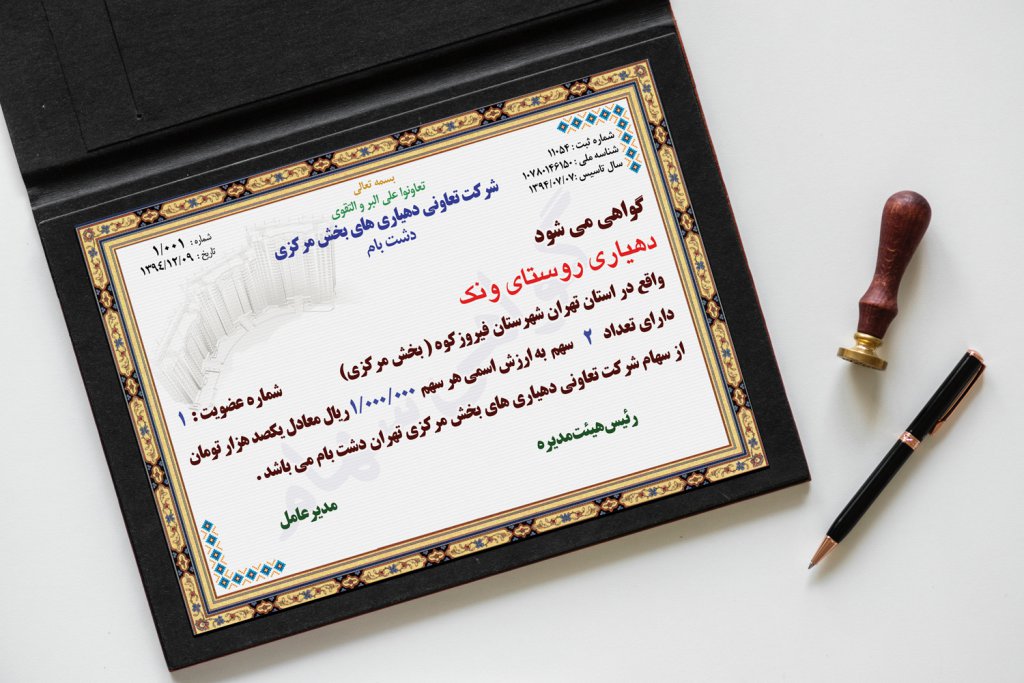 بسمه تعالی
تعاونوا علی البر و التقوی
شرکت تعاونی دهیاری های بخش مرکزی
دشت بام
شماره ثبت : ۱۱۰۵۴
شناسه ملی : ۱۰۷۸۰۱۴۶۱۵۰
سال تاسیس :۱۳۹۴/۰۷/۰۷
شماره : ۱/۰۰۱
تاریخ : ۱۳۹٤/۱۲/۰۹
گواهی می شود
دهیاری روستای ونک
واقع در استان تهران شهرستان فیروزکوه ( بخش مرکزی) شماره عضویت : ۱
دارای تعداد ۲ سهم به ارزش اسمی هر سهم ۱/۰۰۰/۰۰۰ ریال معادل یکصد هزار تومان
از سهام شرکت تعاونی دهیاری های بخش مرکزی تهران دشت بام می باشد .
رئیس هیئت مدیره
مدیر عامل